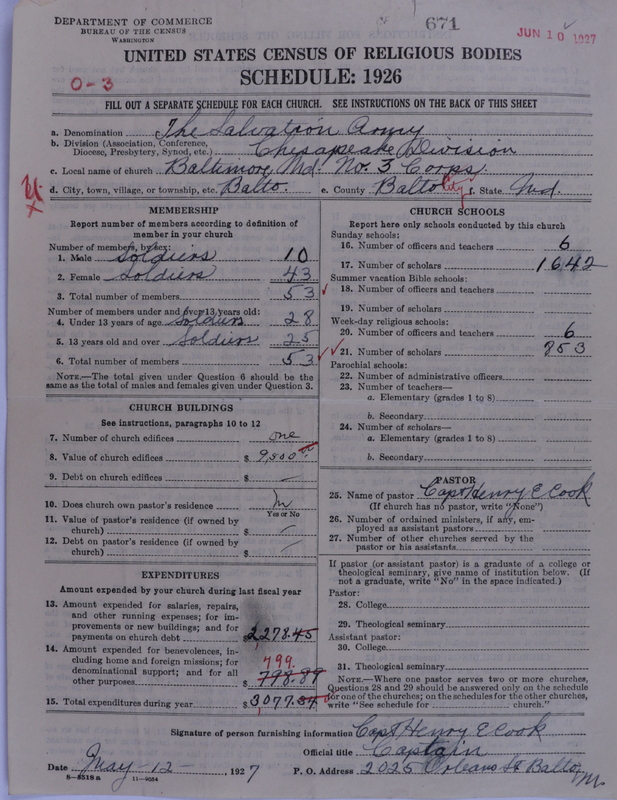 DEPARTMENT OF COMMERCE
BUREAU OF THE CENSUS
WASHINGTON
671
JUN 10 1927
UNITED STATES CENSUS OF RELIGIOUS BODIES
SCHEDULE: 1926
0-3
FILL OUT A SEPARATE SCHEDULE FOR EACH CHURCH. SEE INSTRUCTIONS ON THE BACK OF THIS SHEET
a. Denomination The Salvation Army
b. Division (Association, Conference, Diocese, Presbytery, Synod, etc.) Chesapeake Division
c. Local name of church Baltimore Md. No. 3 Corps
d. City, town, village, or township, etc. Balto. e. County Balto City f. State Md.
MEMBERSHIP
Report number of members according to definition of
member in your church
Number of members, by sex:
1. Male Soldiers 10
2. Female Soldiers 43
3. Total number of members 53
Number of members under and over 13 years old:
4. Under 13 years of age Soldiers 28
5. 13 years old and over Soldiers 25
6. Total number of members 53
NOTE.—The total given under Question 6 should be the
same as the total of males and females given under Question 3.
CHURCH BUILDINGS
See instructions, paragraphs 10 to 12
7. Number of church edifices one
8. Value of church edifices $ 9,500 00
9. Debt on church edifices $ —
10. Does church own pastor's residence
Yes or No
11. Value of pastor's residence (if owned by
church) $ —
12. Debt on pastor's residence (if owned by
church) $ —
EXPENDITURES
Amount expended by your church during last fiscal year
13. Amount expended for salaries, repairs,
and other running expenses; for im-
provements or new buildings; and for
payments on church debt $ 2278.45
14. Amount expended for benevolences, in-
cluding home and foreign missions; for
denominational support; and for all
other purposes $ 798.89
799.
15. Total expenditures during year $ 3077.34
CHURCH SCHOOLS
Report here only schools conducted by this church
Sunday schools:
16. Number of officers and teachers 6
17. Number of scholars 1642
Summer vacation Bible schools:
18. Number of officers and teachers
19. Number of scholars
Week-day religious schools:
20. Number of officers and teachers 6
21. Number of scholars 853
Parochial schools:
22. Number of administrative officers
23. Number of teachers—
a. Elementary (grades 1 to 8)
b. Secondary
24. Number of scholars—
a. Elementary (grades 1 to 8)
b. Secondary
PASTOR
25. Name of pastor Capt Henry E Cook
(If church has no pastor, write "None")
26. Number of ordained ministers, if any, em-
ployed as assistant pastors
27. Number of other churches served by the
pastor or his assistants
If pastor (or assistant pastor) is a graduate of a college or
theological seminary, give name of institution below. (If
not a graduate, write "No" in the space indicated.)
Pastor:
28. College
29. Theological seminary
Assistant pastor:
30. College
31. Theological seminary
NOTE.—Where one pastor serves two or more churches,
Questions 28 and 29 should be answered only on the schedule
for one of the churches; on the schedules for the other churches,
write "See schedule for church."
Signature of person furnishing information Capt Henry E Cook
Official title Captain
Date May-12-, 1927 P. O. Address 2025 Orleans St Balto, M.
8-5518a 11-9034